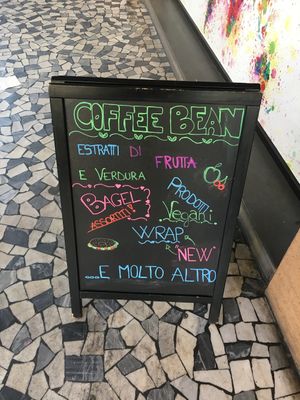 COFFEE BEAN
ESTRATTI DI FRUTTA
E VERDURA
BAGEL
ASSORTITI!
PRODOTTI
Vegani
WRAP
"NEW"
...E MOLTO ALTRO